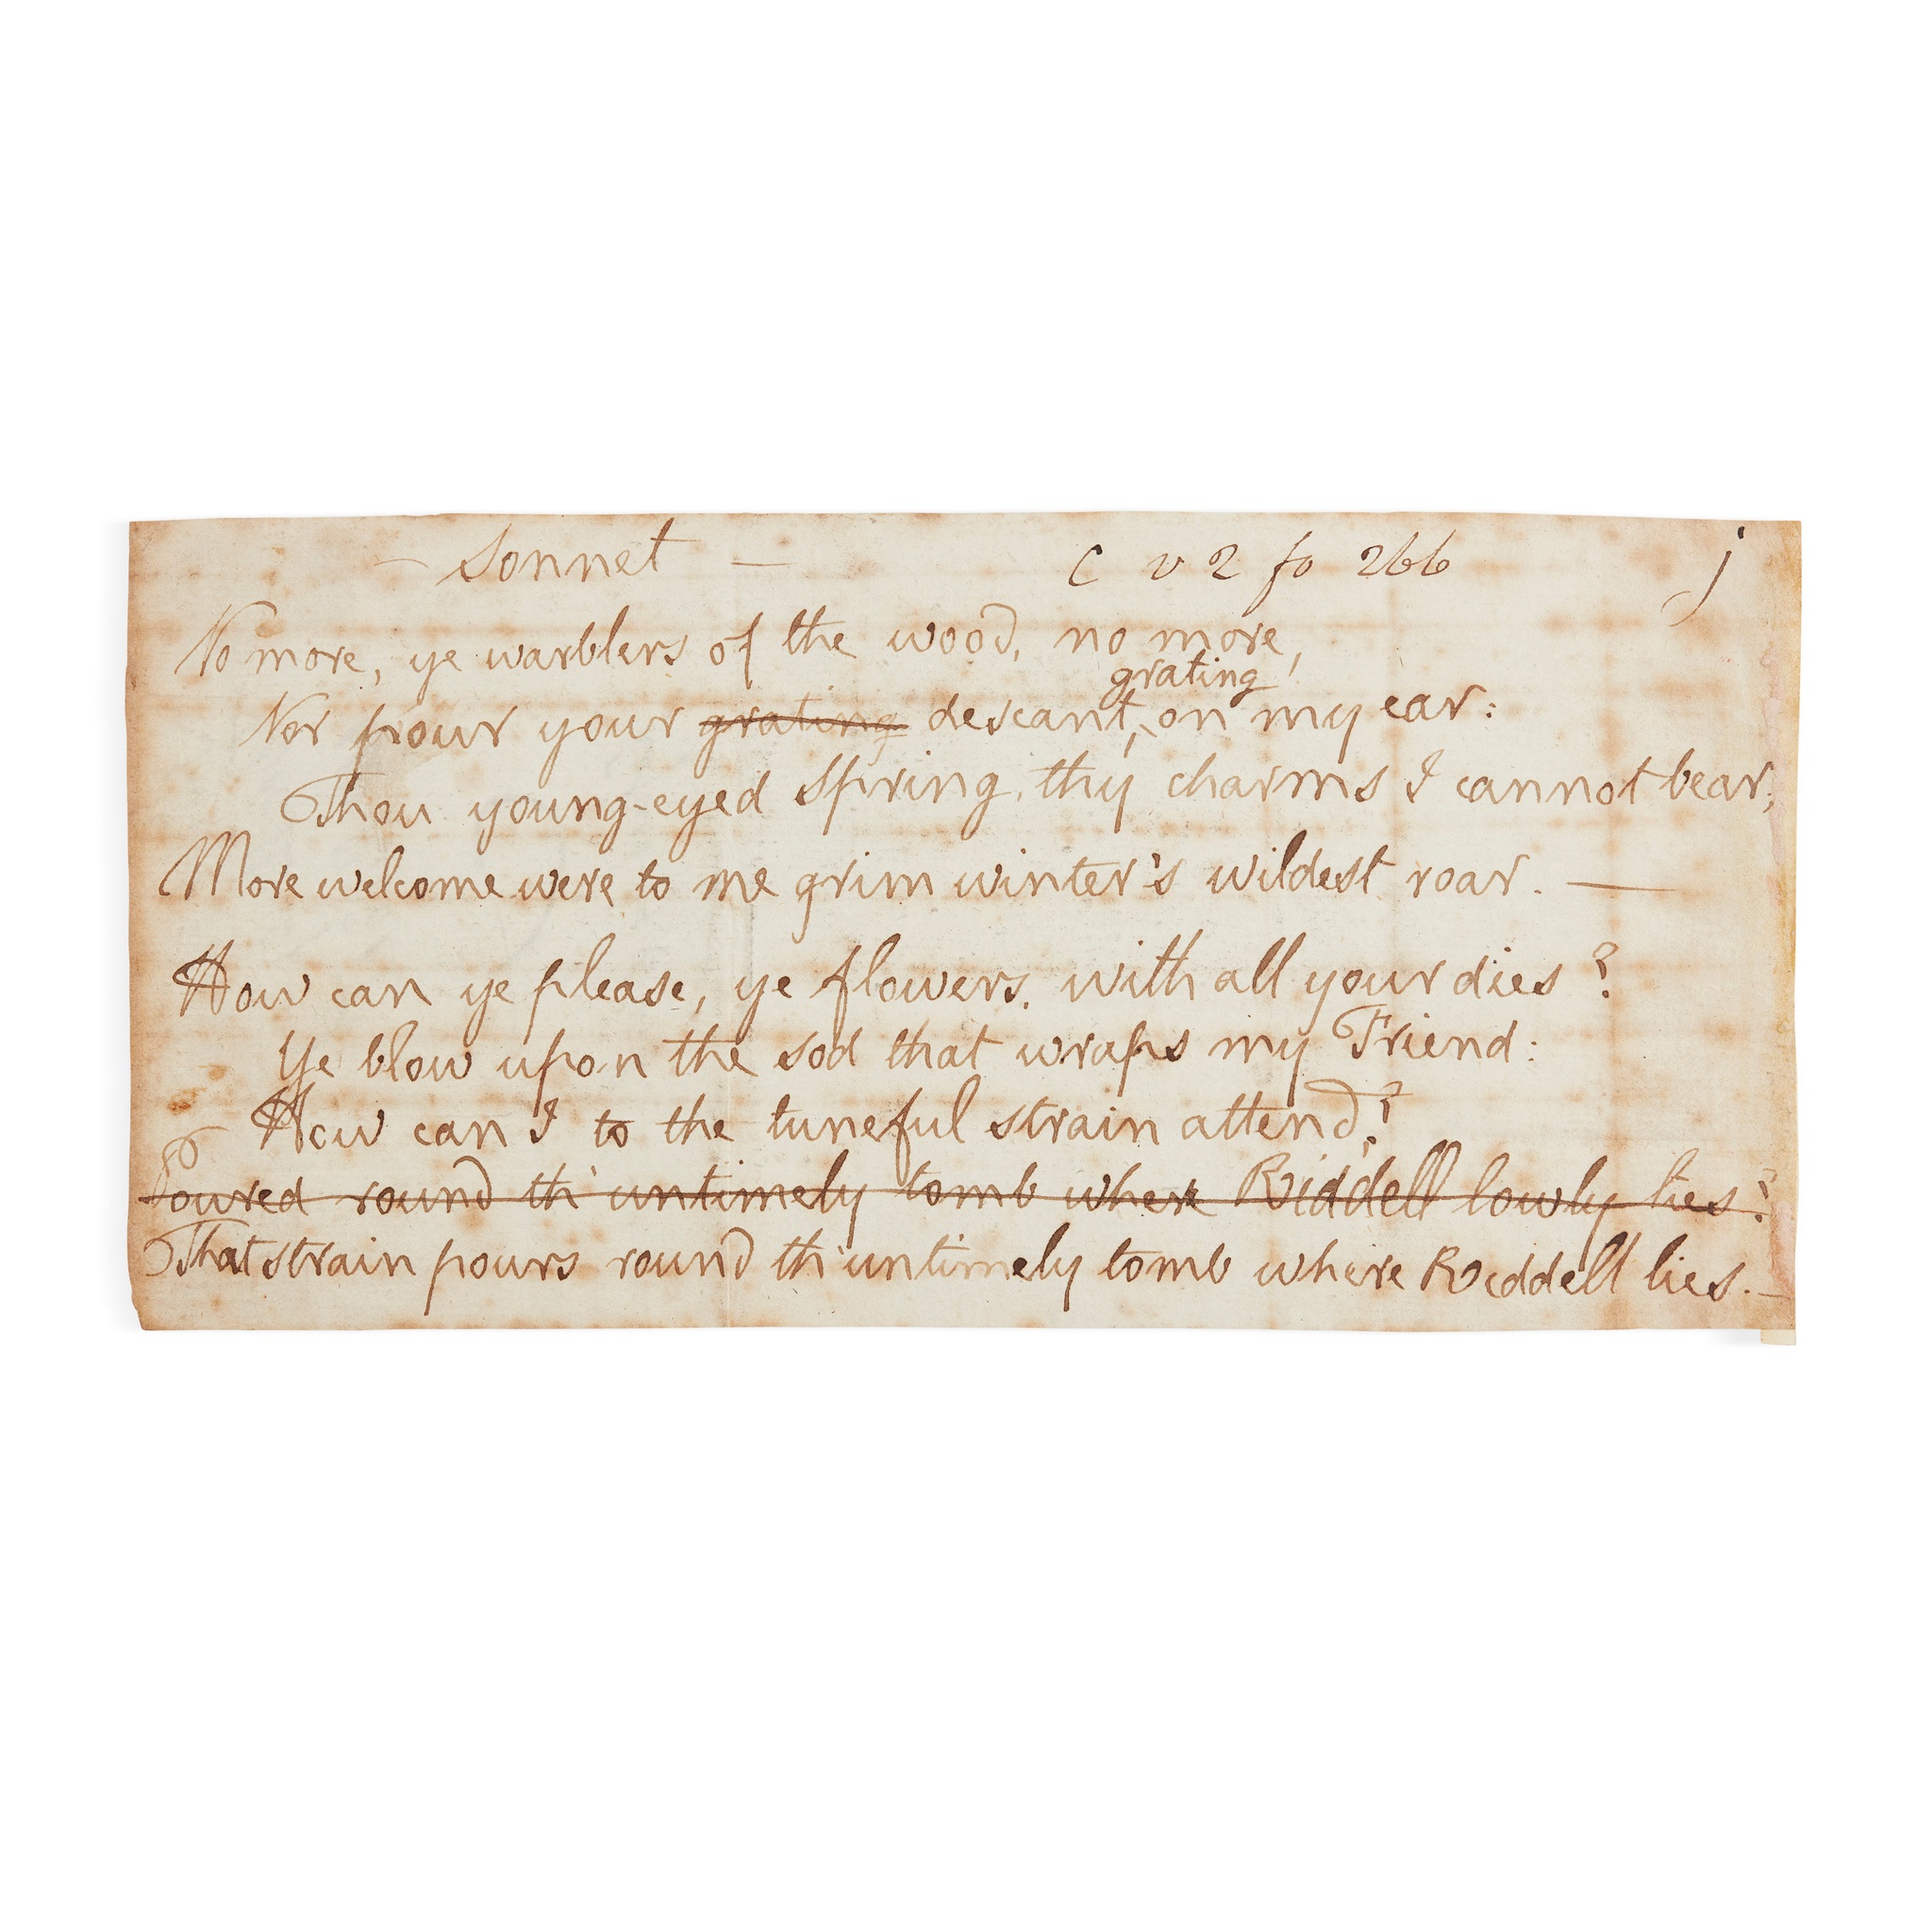 — Sonnet — C v 2 fo 266 j
No more, ye warblers of the wood, no more,
grating
Nor pour your grating descant, on my ear:
Thou young-eyed Spring, thy charms I cannot bear;
More welcome were to me grim winter's wildest roar. —
How can ye please, ye flowers, with all your dies?
Ye blow upon the sod that wraps my Friend:
How can I to the tuneful strain attend?
Poured round th' untimely tomb where Riddell lowly lies?
That strain pours round th' untimely tomb where Riddell lies. —